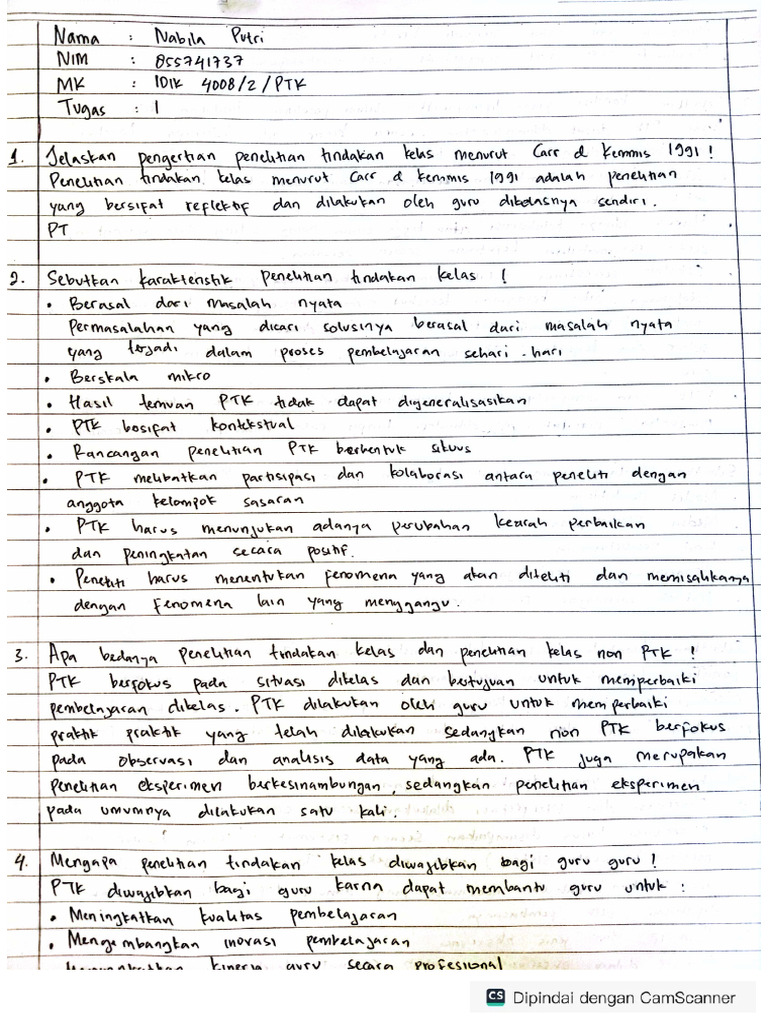 Nama : Nabila Putri
NIM : 855741737
MK : IDIK 4008/2/PTK
Tugas : 1
1. Jelaskan pengertian penelitian tindakan kelas menurut Carr & Kemmis 1991 !
Penelitian tindakan kelas menurut Carr & Kemmis 1991 adalah penelitian
yang bersifat reflektif dan dilakukan oleh guru dikelasnya sendiri.
PT
2. Sebutkan karakteristik penelitian tindakan kelas !
• Berasal dari masalah nyata
Permasalahan yang dicari solusinya berasal dari masalah nyata
yang terjadi dalam proses pembelajaran sehari-hari
• Berskala mikro
• Hasil temuan PTK tidak dapat digeneralisasikan
• PTK bosifat kontekstual
• Rancangan penelitian PTK berbentuk siklus
• PTK melibatkan partisipasi dan kolaborasi antara peneliti dengan
anggota kelompok sasaran
• PTK harus menunjukan adanya perubahan kearah perbaikan
dan peningkatan secara positif.
• Peneliti harus menentukan fenomena yang akan diteliti dan memisahkannya
dengan fenomena lain yang mengganggu.
3. Apa bedanya penelitian tindakan kelas dan penelitian kelas non PTK !
PTK berfokus pada situasi dikelas dan bertujuan untuk memperbaiki
pembelajaran dikelas. PTK dilakukan oleh guru untuk memperbaiki
praktik praktik yang telah dilakukan sedangkan non PTK berfokus
pada observasi dan analisis data yang ada. PTK juga merupakan
penelitian eksperimen berkesinambungan, sedangkan penelitian eksperimen
pada umumnya dilakukan satu kali.
4. Mengapa penelitian tindakan kelas diwajibkan bagi guru guru !
PTK diwajibkan bagi guru karna dapat membantu guru untuk :
• Meningkatkan kualitas pembelajaran
• Mengembangkan inovasi pembelajaran
kinerja guru secara profesional
CS Dipindai dengan CamScanner